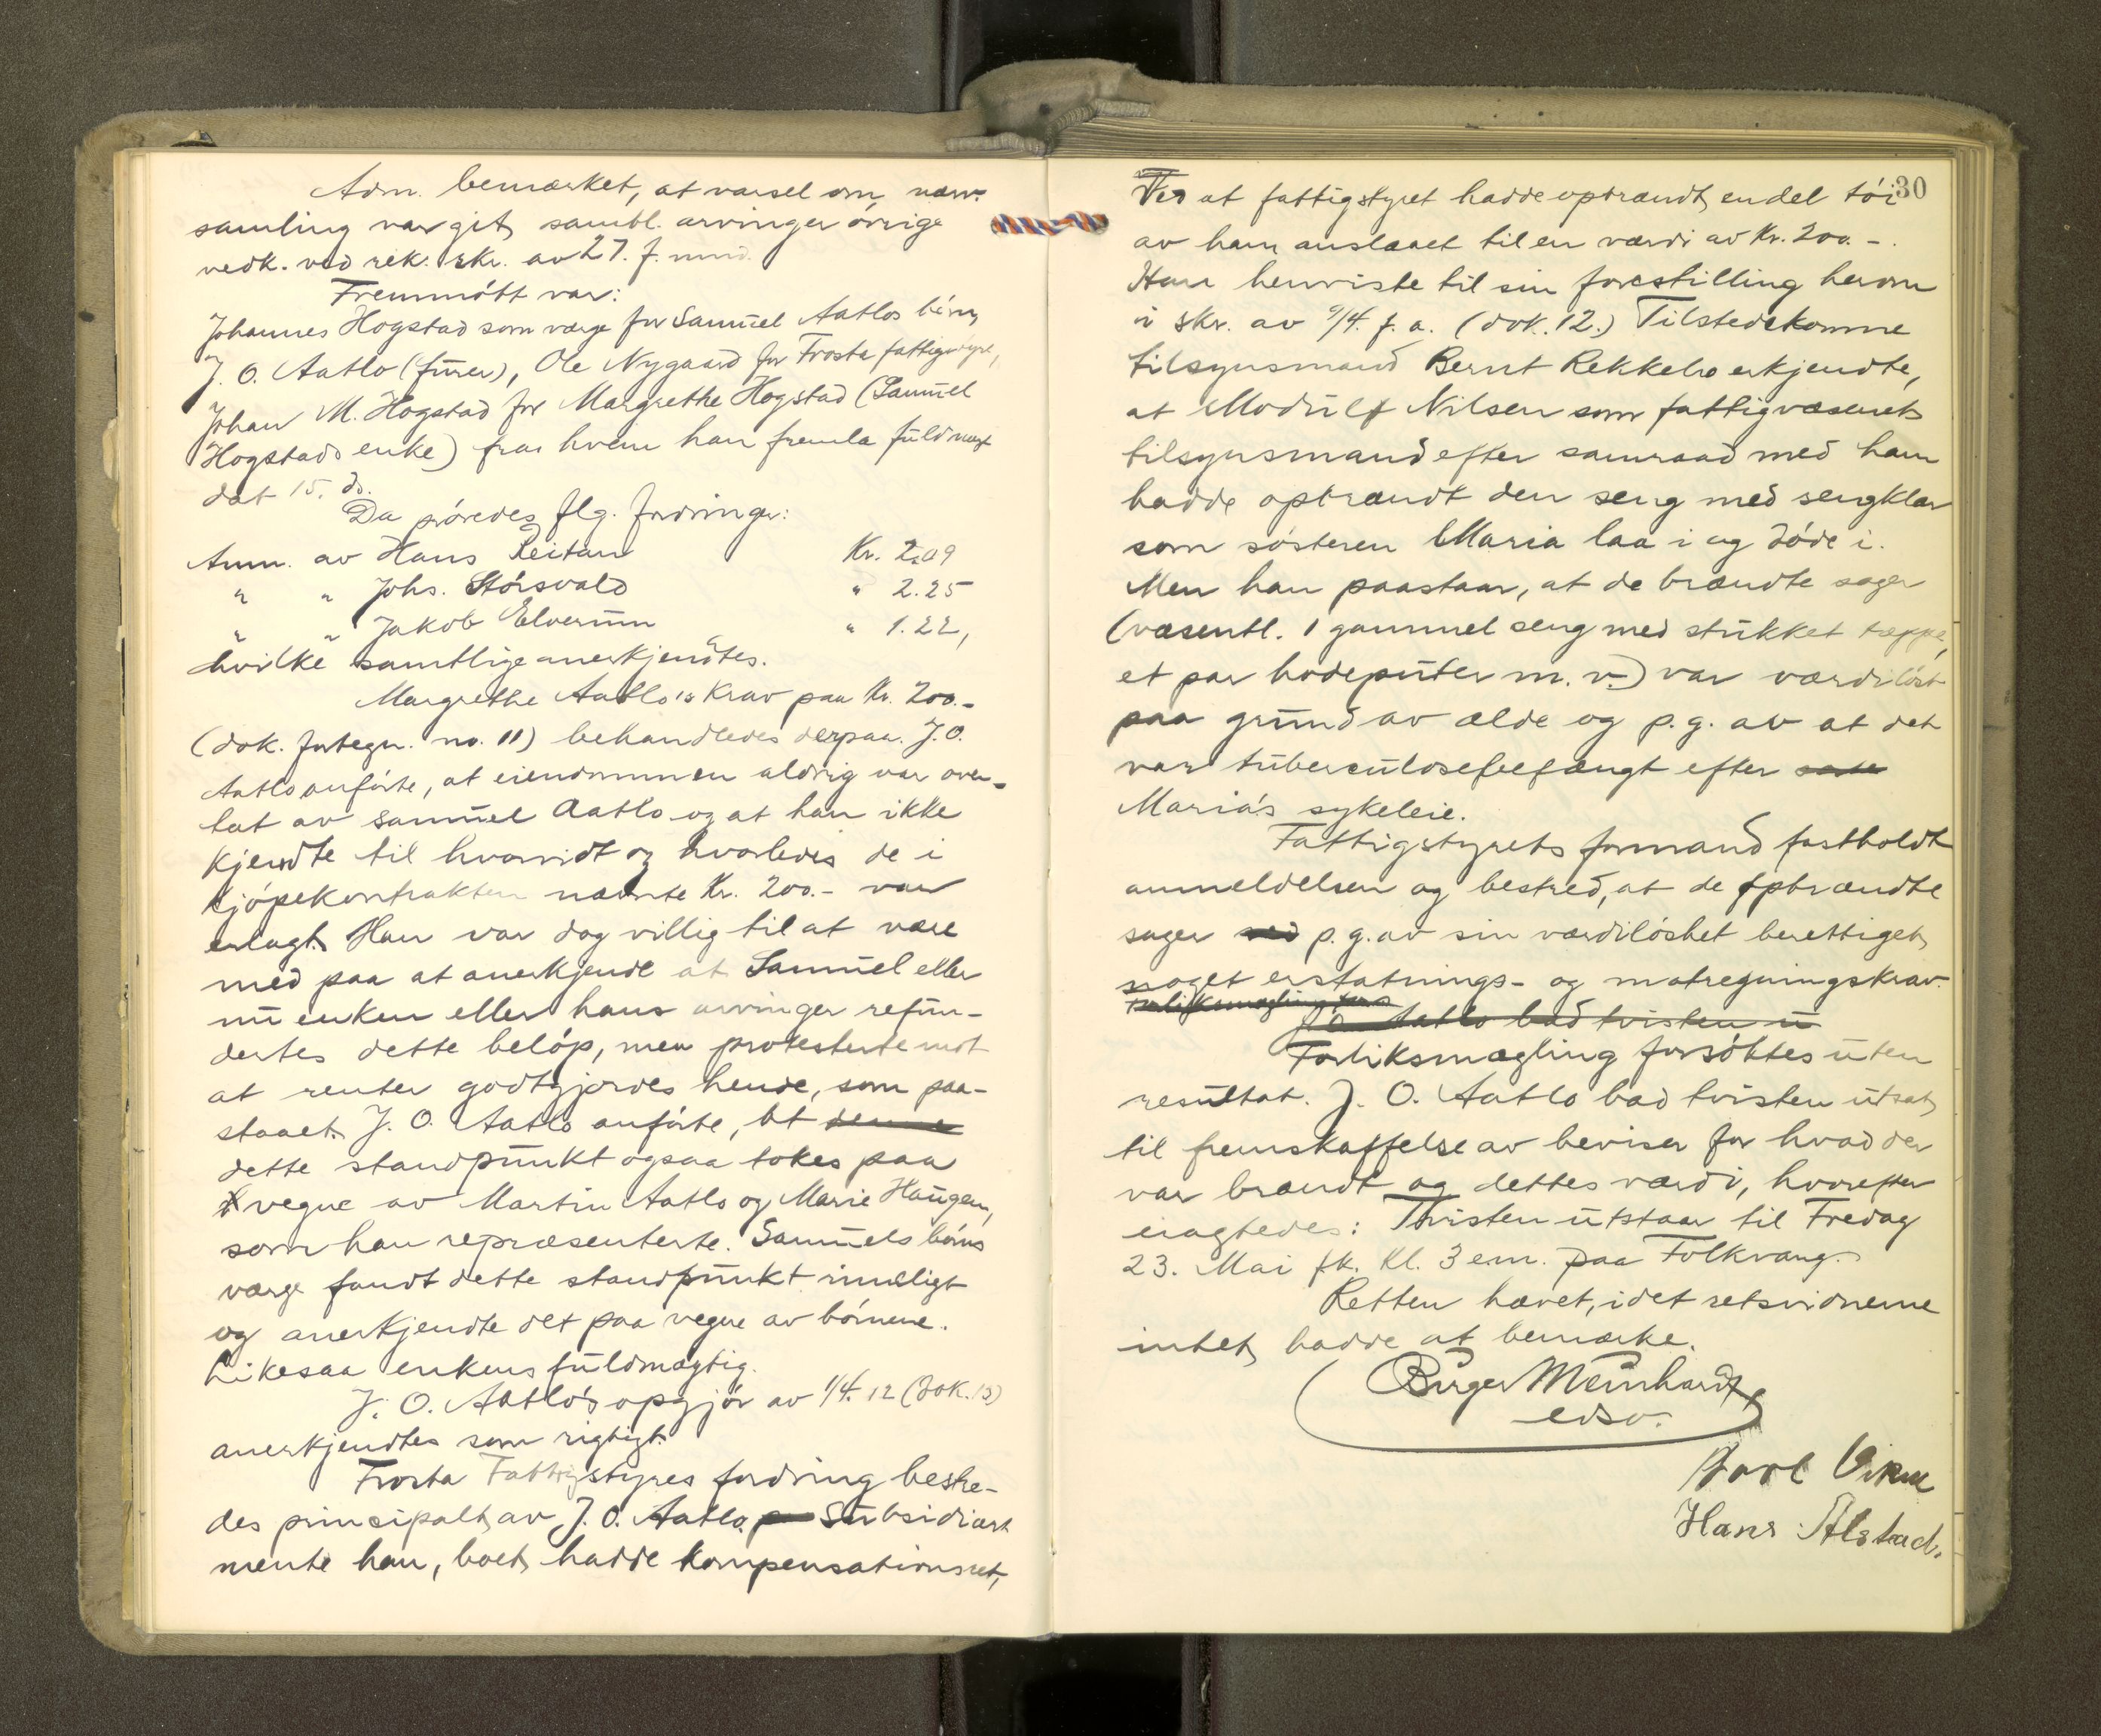 Adm. bemærket, at varsel om nærv.
samling var git samtl. arvinger øvrige
vedk. ved rek. skr. av 27. f. mnd.
Fremmøtt var:
Johannes Hogstad som værge for Samuel Aatlos børn,
J. O. Aatlo (fører), Ole Nygaard for Frosta fattigstyre,
Johan M. Hogstad for Margrethe Hogstad (Samuel
Hogstads enke) fra hvem han fremla fuldmagt
dat 15. ds.
Da prøvedes flg. fordringer:
Anm. av Hans Reitan Kr. 2.09
" " Johs. Størsvald " 2.25
" " Jakob Elverum " 1.22,
hvilke samtlige anerkjendtes.
Margrethe Aatlo's krav paa Kr. 200.-
(dok. fortegn. no. 11) behandledes derpaa. J. O.
Aatlo anførte, at eiendommen aldrig var over-
tat av Samuel Aatlo og at han ikke
kjendte til hvorvidt og hvorledes de i
kjøpekontrakten nævnte Kr. 200.- var
erlagt. Han var dog villig til at være
med paa at anerkjende at Samuel eller
nu enken eller hans arvinger refun-
dertes dette beløp, men protesterte mot
at renter godtgjordes hende, som paa-
staaet. J. O. Aatlo anførte, at
dette standpunkt ogsaa tokes paa
vegne av Martin Aatlo og Marie Haugen,
som han repræsenterte. Samuels børns
værge fandt dette standpunkt rimeligt
og anerkjendte det paa vegne av børnene.
Likesaa enkens fuldmægtig.
J. O. Aatlo's opgjør av 1/4. 12 (Dok. 13)
anerkjendtes som rigtigt.
Frosta Fattigstyres fordring bestre-
des principalt av J. O. Aatlo. Subsidiært
mente han, boet hadde kompensationsret,
30
Ved at fattigstyret hadde opbrændt endel tøi
av ham anslaaet til en værdi av Kr. 200.-.
Han henviste til sin forestilling herom
i skr. av 9/4. f. a. (dok. 12.) Tilstedekomne
tilsynsmand Bernt Rekkebo erkjendte,
at Modulf Nilsen som fattigvæsenets
tilsynsmand efter samraad med ham
hadde opbrændt den seng med sengklær
som søsteren Maria laa i og døde i.
Men han paastaar, at de brændte sager
(væsentl. 1 gammel seng med stukket tæppe,
et par hodeputer m. v.) var værdiløst
paa grund av ælde og p. g. av at det
var tuberculosebefængt efter
Maria's sykeleie.
Fattigstyrets formand fastholdt
anmeldelsen og bestred, at de opbrændte
sager p. g. av sin værdiløshet berettiget
noget erstatnings- og motregningskrav.
Forliksmægling førs
J. O. Aatlo bad tvisten u
Forliksmægling forsøktes uten
resultat. J. O. Aatlo bad tvisten utsat
til fremskaffelse av beviser for hvad der
var brændt og dettes værdi, hvorefter
eragtedes: Tvisten utstaar til Fredag
23. Mai fk. Kl. 3 em. paa Folkvang.
Retten hævet, idet retsvidnerne
intet hadde at bemærke.
Birger Meinhardt
edsv.
Hans Alstad.